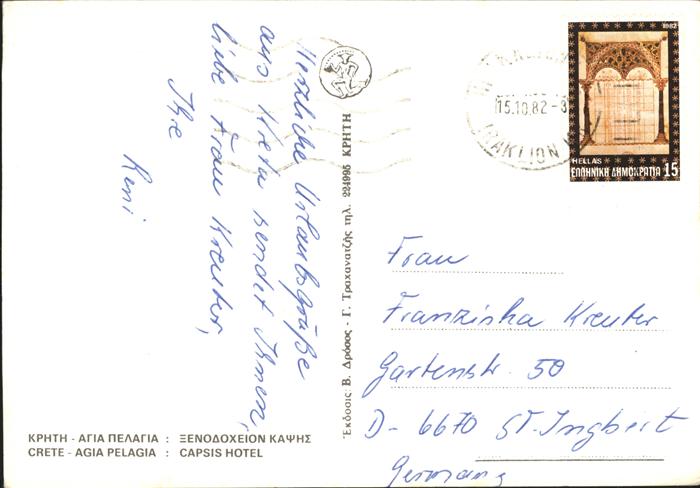 Herzliche Urlaubsgrüße
aus Kreta sendet Ihnen,
liebe Frau Kreuter,
Ihre
Reni
ΚΡΗΤΗ - ΑΓΙΑ ΠΕΛΑΓΙΑ : ΞΕΝΟΔΟΧΕΙΟΝ ΚΑΨΗΣ
CRETE - AGIA PELAGIA : CAPSIS HOTEL
Ἔκδοσις: Β. Δρόσος - Γ. Τραχανατζῆς τηλ. 224995 ΚΡΗΤΗ
15.10.82
IRAKLION
1982
HELLAS
ΕΛΛΗΝΙΚΗ ΔΗΜΟΚΡΑΤΙΑ 15
Frau
Franziska Kreuter
Gartenstr. 50
D- 6670 ST. Ingbert
Germany